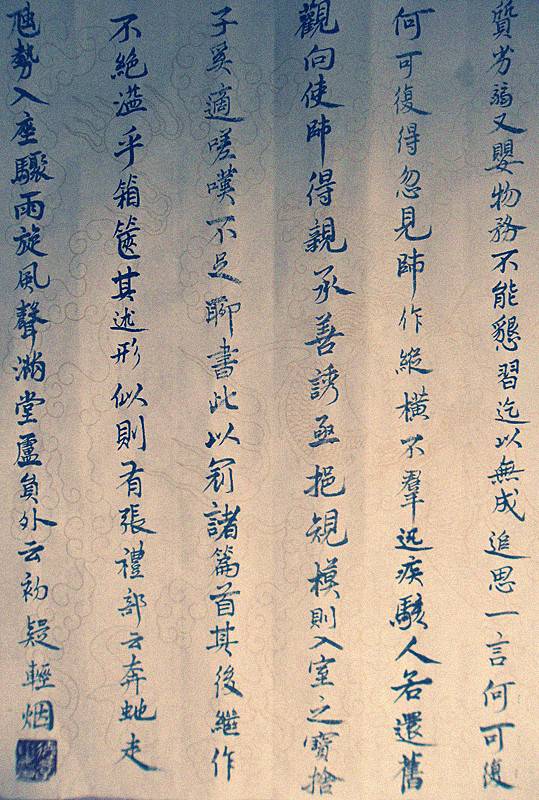 質劣弱又嬰物務不能懇習迄以無成追思一言何可復
何可復得忽見師作縱橫不羣迅疾駭人若還舊
觀向使師得親承善誘亟挹規模則入室之賓捨
子奚適嗟嘆不足聊書此以冠諸篇首其後繼作
不絕溢乎箱篋其述形似則有張禮部云奔虵走
虺勢入座驟雨旋風聲滿堂盧員外云初疑輕烟